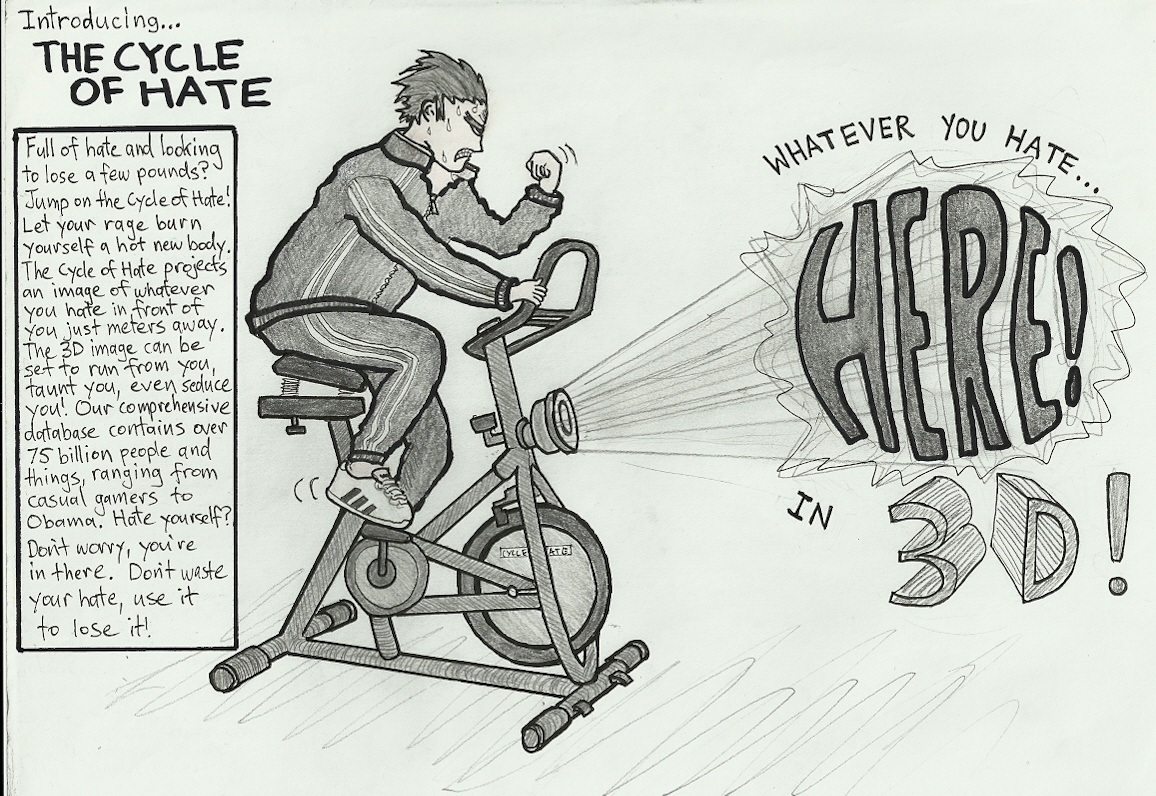 Introducing...
THE CYCLE
OF HATE
Full of hate and looking
to lose a few pounds?
Jump on the Cycle of Hate!
Let your rage burn
yourself a hot new body.
The Cycle of Hate projects
an image of whatever
you hate in front of
you just meters away.
The 3D image can be
set to run from you,
taunt you, even seduce
you! Our comprehensive
database contains over
75 billion people and
things, ranging from
casual gamers to
Obama. Hate yourself?
Don't worry, you're
in there. Don't waste
your hate, use it
to lose it!
WHATEVER YOU HATE...
HERE!
IN
3D!
CYCLE